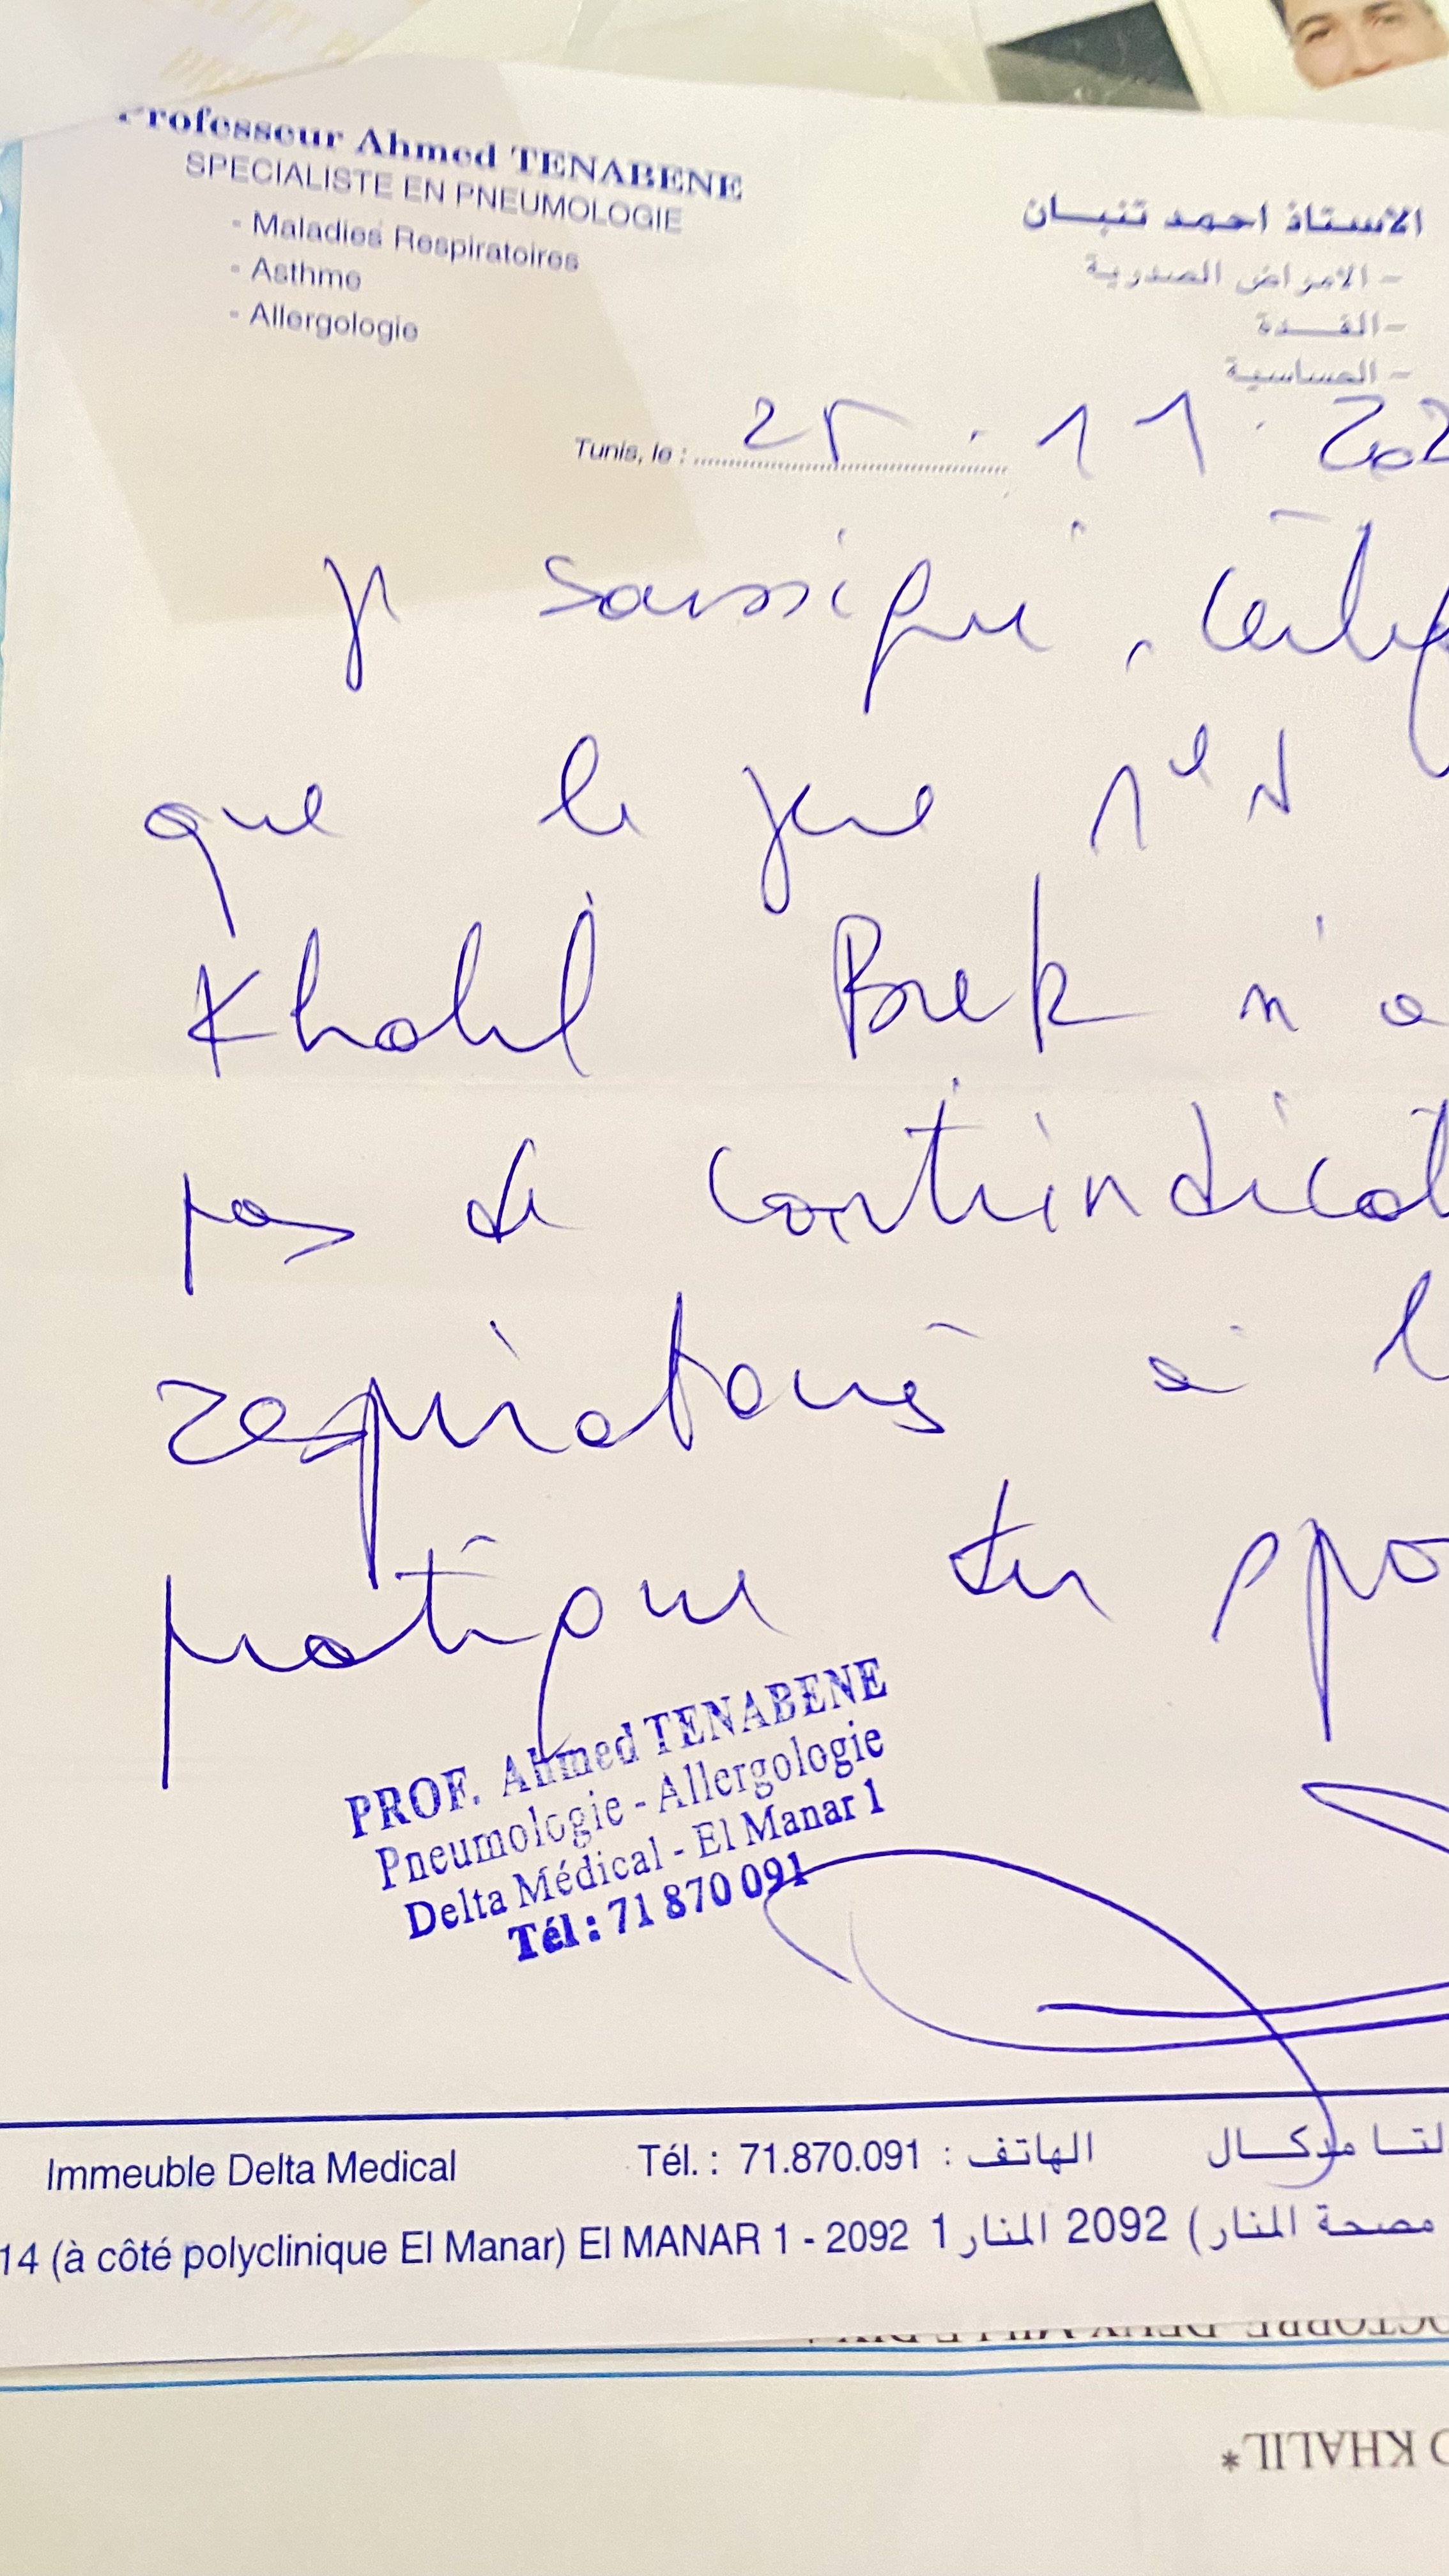 Professeur Ahmed TENABENE
SPECIALISTE EN PNEUMOLOGIE
- Maladies Respiratoires
- Asthme
- Allergologie
الاستاذ احمد تنبان
- الامراض الصدرية
- الفدة
- الحساسية
Tunis, le : 25 . 11 . 202
je soussigné, certif
que le jeune
Khalil Brek n'a
pas de contrindicat
respiratoires à l
pratique du spo
PROF. Ahmed TENABENE
Pneumologie - Allergologie
Delta Médical - El Manar 1
Tél : 71 870 091
Immeuble Delta Medical
Tél. : 71.870.091 : الهاتف
لتا مدكال
14 (à côté polyclinique El Manar) El MANAR 1 - 2092
مصحة المنار) 2092 المنار 1
KHALIL*